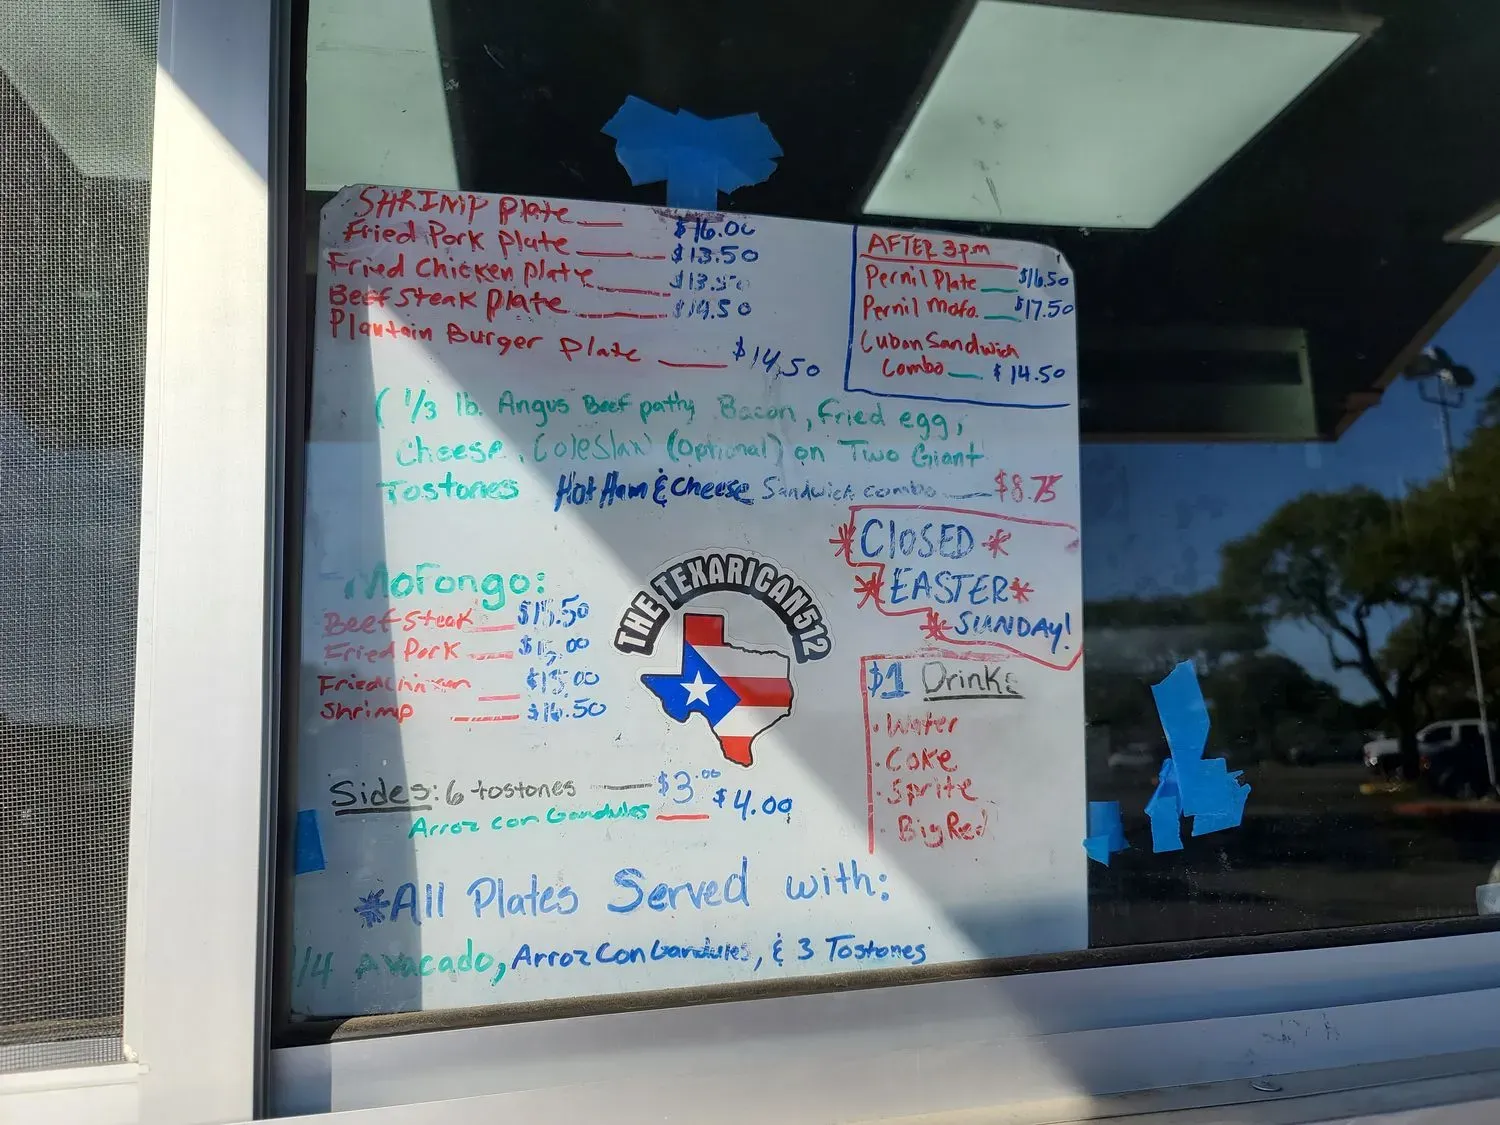 SHRIMP Plate $16.00
Fried Pork Plate $13.50
Fried Chicken Plate $13.50
Beef Steak Plate $14.50
Plantain Burger Plate $14.50
( 1/3 lb. Angus Beef patty Bacon, Fried egg,
Cheese, Coleslaw (Optional) on Two Giant
Tostones
Hot Ham & Cheese Sandwich combo $8.75
AFTER 3pm
Pernil Plate $16.50
Pernil Mofo. $17.50
Cuban Sandwich
Combo $14.50
*CLOSED*
*EASTER*
*SUNDAY!
Mofongo:
Beef Steak $15.50
Fried Pork $15.00
Fried Chicken $15.00
Shrimp $16.50
THE TEXARICAN512
$1 Drinks
· Water
· Coke
· Sprite
· Big Red
Sides: 6 tostones $3.00
Arroz con Gandules $4.00
*All Plates Served with:
1/4 Avacado, Arroz Con Gandules, & 3 Tostones